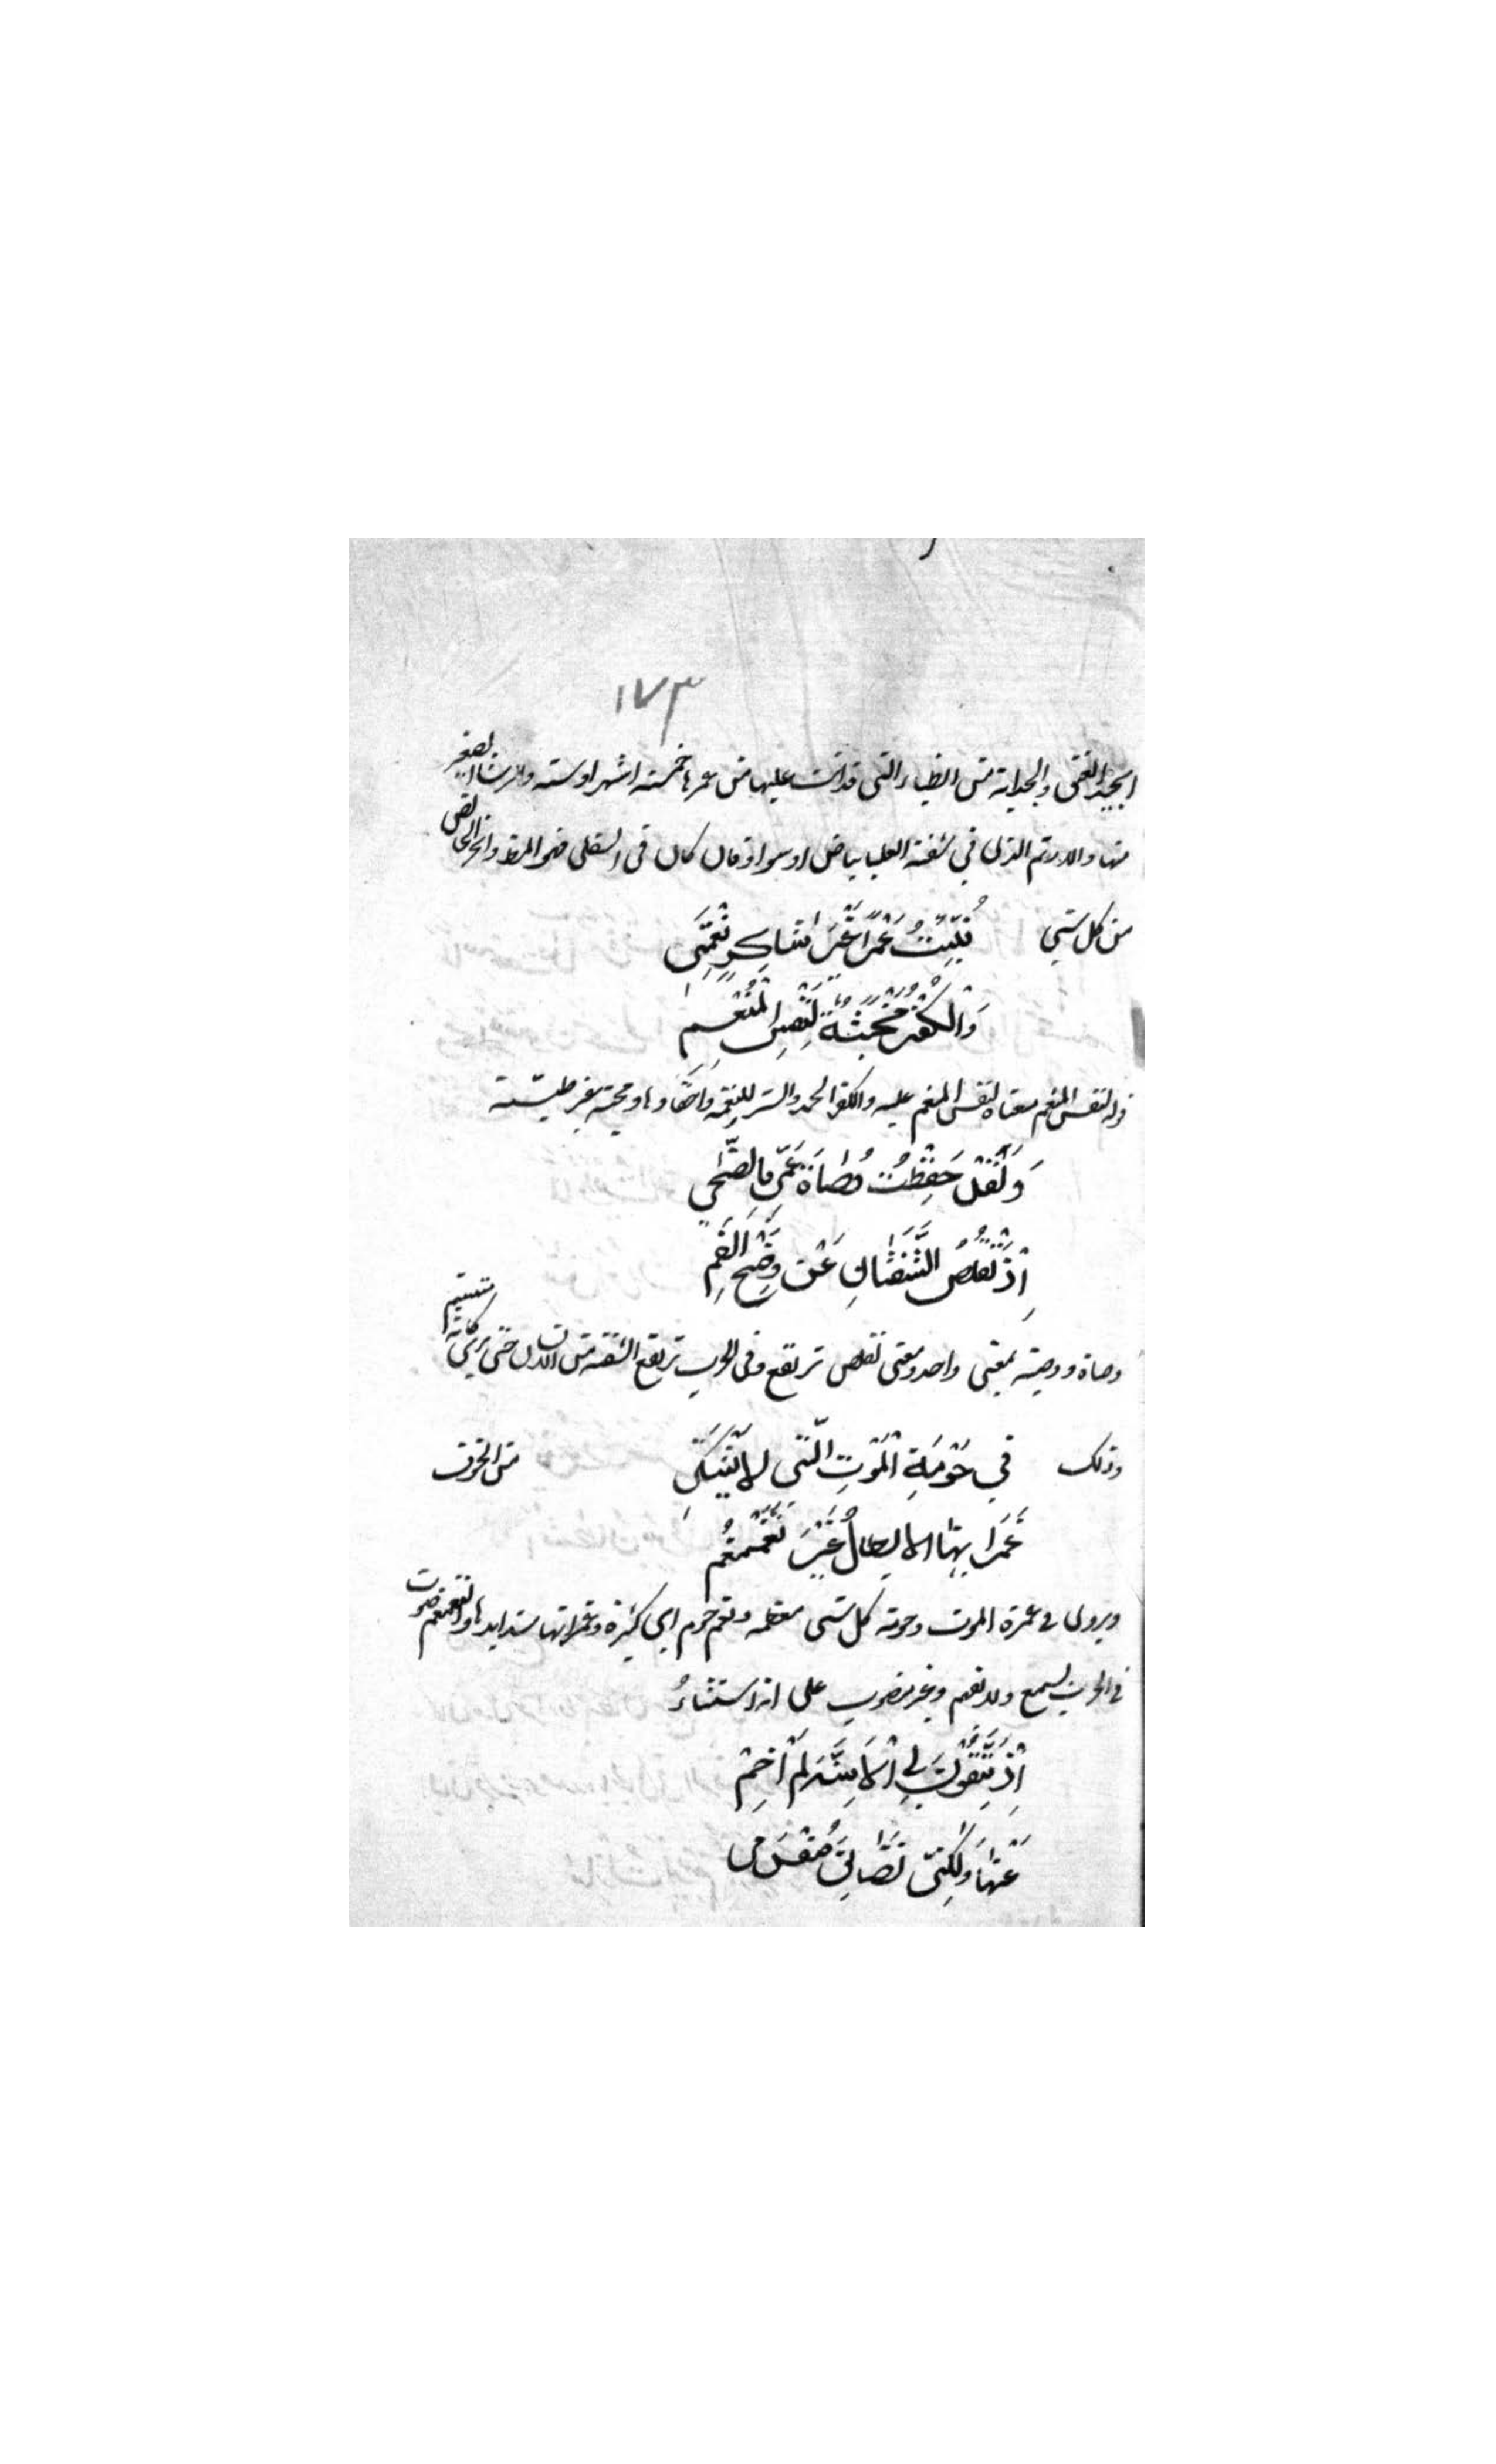 ١٧٣
الجيد العنق والجداية من الظباء التي قد اتت عليها من عمرها خمسة اشهر او ستة والرشا الصغير
منها والارثم الذي في شفته العليا بياض او سواد فان كان في السفلى فهو المظ والحر الخالص
من كل شي نُبِّيتُ عَمْرًا غَيْرَ شَاكِرِ نِعْمَتِي
وَالْكُفْرُ مَخْبَثَةٌ لِنَفْسِ الْمُنْعِمِ
قوله لنفس المنعم معناه لنفس المنعم عليه والكفر الجحد والستر للنعمة واخفاوها ومخبثة غير طيبة
وَلَقَدْ حَفِظْتُ وَصَاةَ عَمِّي بِالضُّحَى
اِذْ تَقْلِصُ الشَّفَتَانِ عَنْ وَضَحِ الْفَمِ
وصاة ووصية بمعنى واحد ومعنى تقلص ترتفع وفي الحرب ترتفع الشفة من الاسنان حتى يرى كانه متبسم
وذلك فِي حَوْمَةِ الْمَوْتِ الَّتِي لَا تَشْتَكِي من الخوف
غَمَرَاتِهَا الْاَبْطَالُ غَيْرَ تَغَمْغُمِ
ويروى في غمرة الموت وحومة كل شي معظمه ونعم حوم اي كثيرة وغمراتها شدايدها والتغمغم صوت
في الحرب يسمع ولا يفهم وغير منصوب على انه استثناءٌ
اِذْ يَتَّقُونَ بِيَ الْاَسِنَّةَ لَمْ اَخِمْ
عَنْهَا وَلَكِنِّي تَضَايَقَ مُقْدَمِي